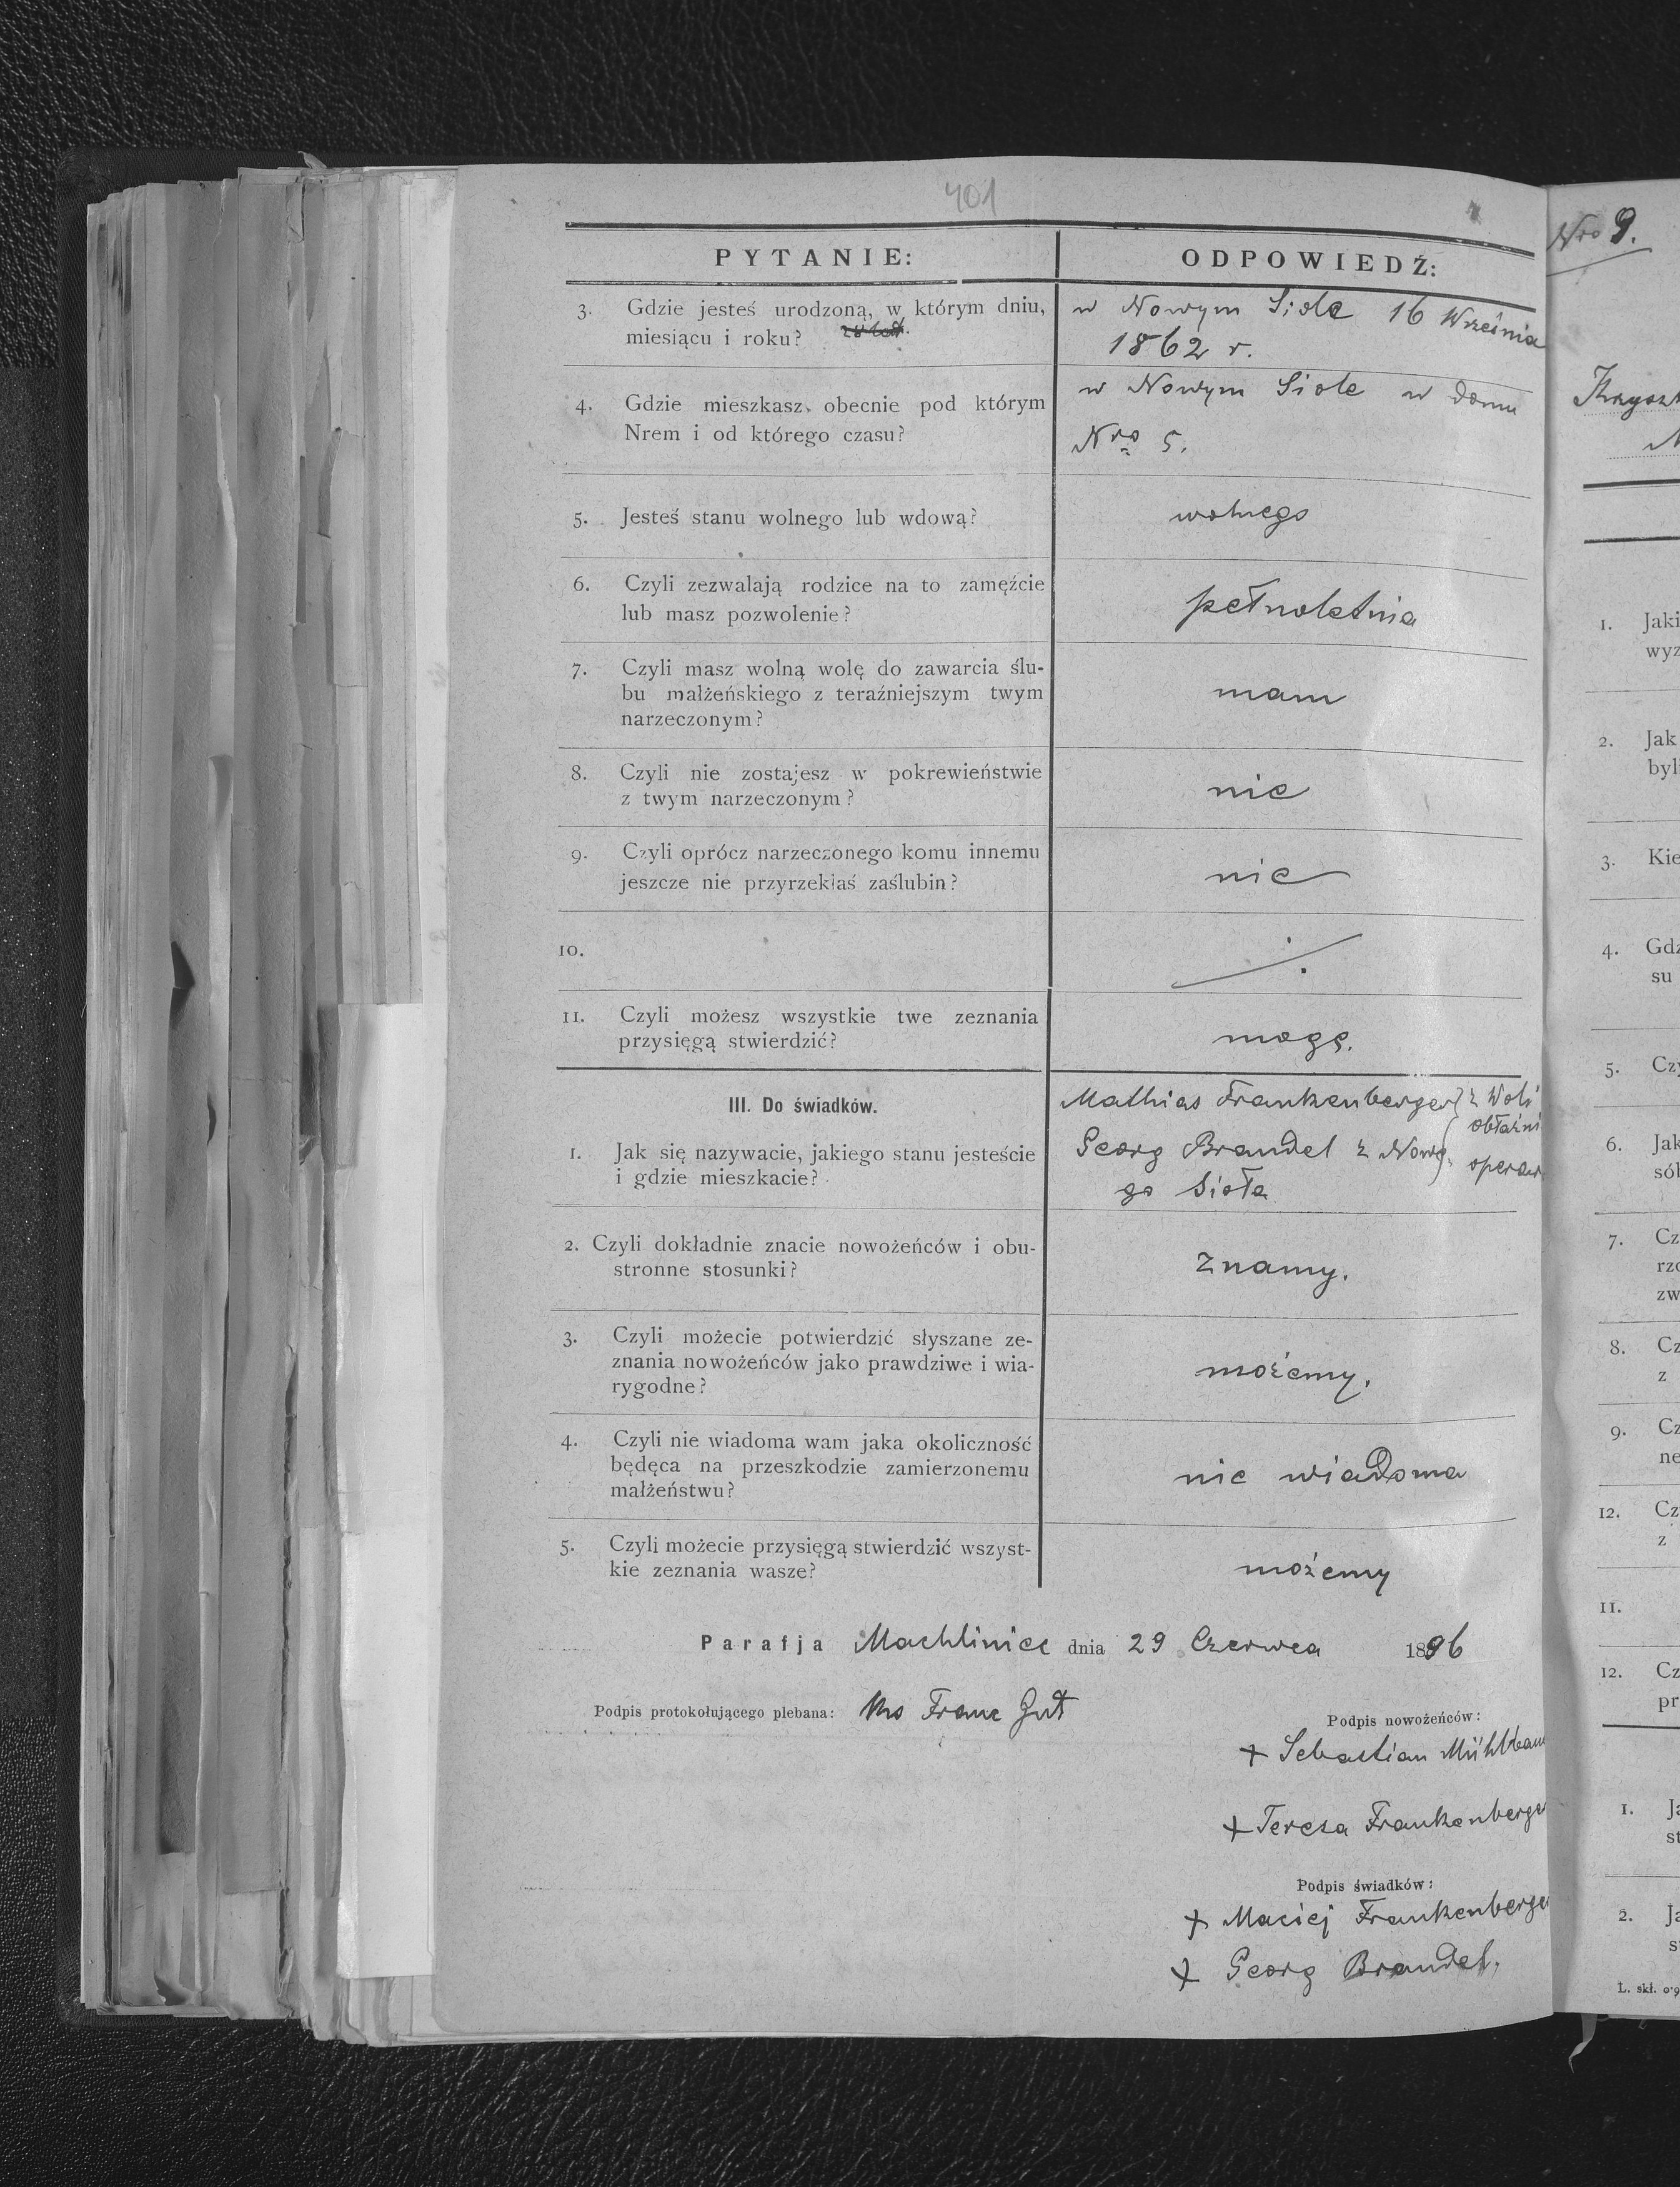 401
PYTANIE:
ODPOWIEDŹ:
3. Gdzie jesteś urodzoną, w którym dniu,
miesiącu i roku?
w Nowym Siole 16 Września
1862 r.
4. Gdzie mieszkasz obecnie pod którym
Nrem i od którego czasu?
w Nowym Siole w domu
Nro 5.
5. Jesteś stanu wolnego lub wdową?
wolnego
6. Czyli zezwalają rodzice na to zamęźcie
lub masz pozwolenie?
pełnoletnia
7. Czyli masz wolną wolę do zawarcia ślu-
bu małżeńskiego z teraźniejszym twym
narzeczonym?
mam
8. Czyli nie zostajesz w pokrewieństwie
z twym narzeczonym?
nie
9. Czyli oprócz narzeczonego komu innemu
jeszcze nie przyrzekłaś zaślubin?
nie
10.
11. Czyli możesz wszystkie twe zeznania
przysięgą stwierdzić?
mogę.
III. Do świadków.
1. Jak się nazywacie, jakiego stanu jesteście
i gdzie mieszkacie?
Mathias Frankenberger z Woli
obłaźni
Georg Brandel z Nowe
go Sioła
2. Czyli dokładnie znacie nowożeńców i obu-
stronne stosunki?
znamy.
3. Czyli możecie potwierdzić słyszane ze-
znania nowożeńców jako prawdziwe i wia-
rygodne?
możemy.
4. Czyli nie wiadoma wam jaka okoliczność
będęca na przeszkodzie zamierzonemu
małżeństwu?
nie wiadoma
5. Czyli możecie przysięgą stwierdzić wszyst-
kie zeznania wasze?
możemy
Parafja Machliniec dnia 29 Czerwca 1896
Podpis protokołującego plebana: Franc Gut
Podpis nowożeńców:
+ Sebastian Mühlbau
+ Teresa Frankenberger
Podpis świadków:
+ Maciej Frankenberge
+ Georg Brandel.
Nro 9.
Krzyszt
1. Jaki
wyz
2. Jak
byl
3. Kie
4. Gdz
su
5. Czy
6. Jak
sół
7. Cz
rzo
zw
8. Cz
z
9. Cz
ne
12. Cz
z
11.
12. Cz
pr
1. Ja
st
2. Ja
s
L. skł. 0·9